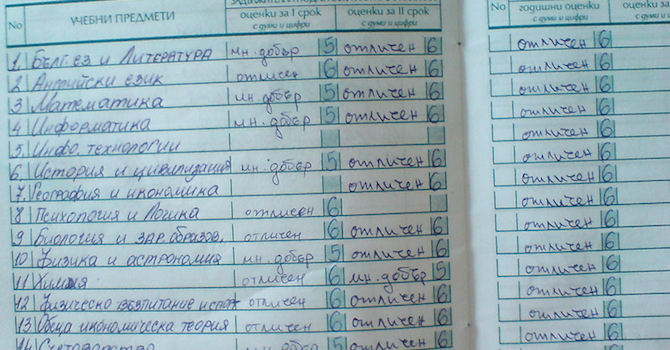 No УЧЕБНИ ПРЕДМЕТИ оценки за I срок с думи и цифри оценки за II срок с думи и цифри
1 Бълг. ез и Литература мн. добър 5 отличен 6
2 Английски език отличен 6 отличен 6
3 Математика мн. добър 5 отличен 6
4 Информатика мн. добър 5 отличен 6
5 Инфо. технологии
6 История и цивилизация мн. добър 5 отличен 6
7. География и икономика отличен 6
8 Психология и Логика отличен 6
9 Биология и здр. образов. отличен 6 отличен 6
10 Физика и астрономия мн. добър 5 отличен 6
11 Химия отличен 6 мн. добър 5
12 Физическо възпитание и спорт отличен 6 отличен 6
13 Обща икономическа теория отличен 6 отличен 6
14 Счетоводство мн. добър 5 отличен 6
No годишни оценки с думи и цифри
отличен 6
отличен 6
отличен 6
отличен 6
отличен 6
отличен 6
отличен 6
отличен 6
отличен 6
отличен 6
отличен 6
отличен 6
отличен 6